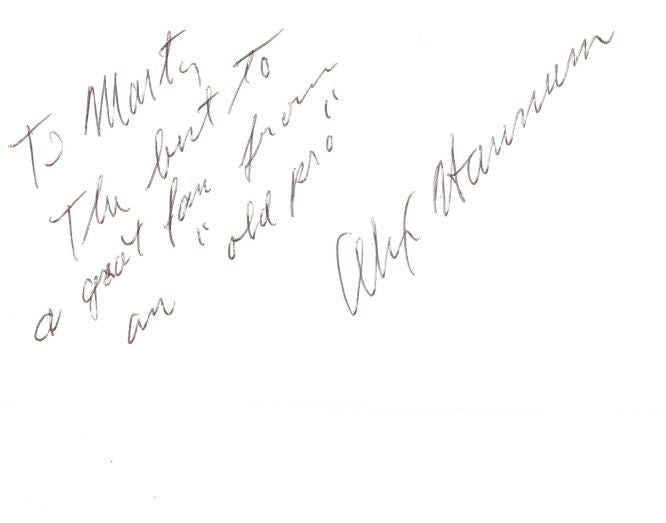 To Marty
The best to
a great fan from
an "old pro"
Alex Hannum